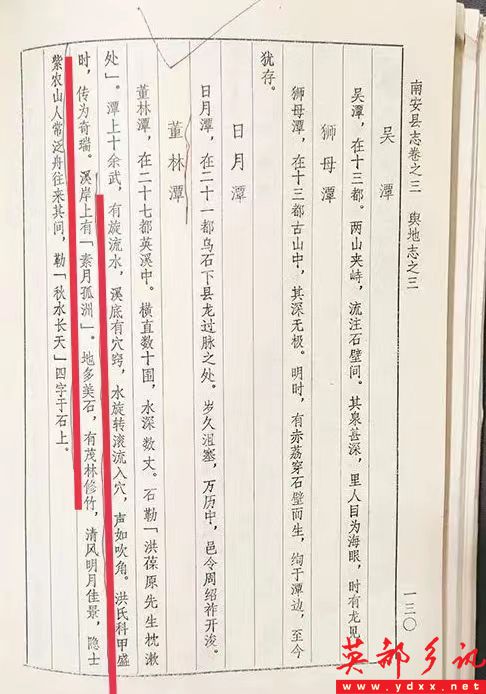 南安县志卷之三 舆地志之三
一三〇
吴潭
吴潭，在十三都。两山夹峙，流注石壁间。其泉甚深，里人目为海眼，时有龙见
狮母潭
狮母潭，在十三都古山中，其深无极。明时，有赤荔穿石壁而生，绚于潭边，至今
犹存。
日月潭
日月潭，在二十一都乌石下县龙过脉之处。岁久沮塞，万历中，邑令周绍祚开浚。
董林潭
董林潭，在二十七都英溪中。横直数十围，水深数丈。石勒「洪葆原先生枕漱
处」。潭上十余武，有旋流水，溪底有穴窍，水旋转滚流入穴，声如吹角。洪氏科甲盛
时，传为奇瑞。溪岸上有「素月孤洲」。地多美石，有茂林修竹，清风明月佳景，隐士
紫农山人常泛舟往来其间，勒「秋水长天」四字于石上。
英都乡讯
www.ydxx.net